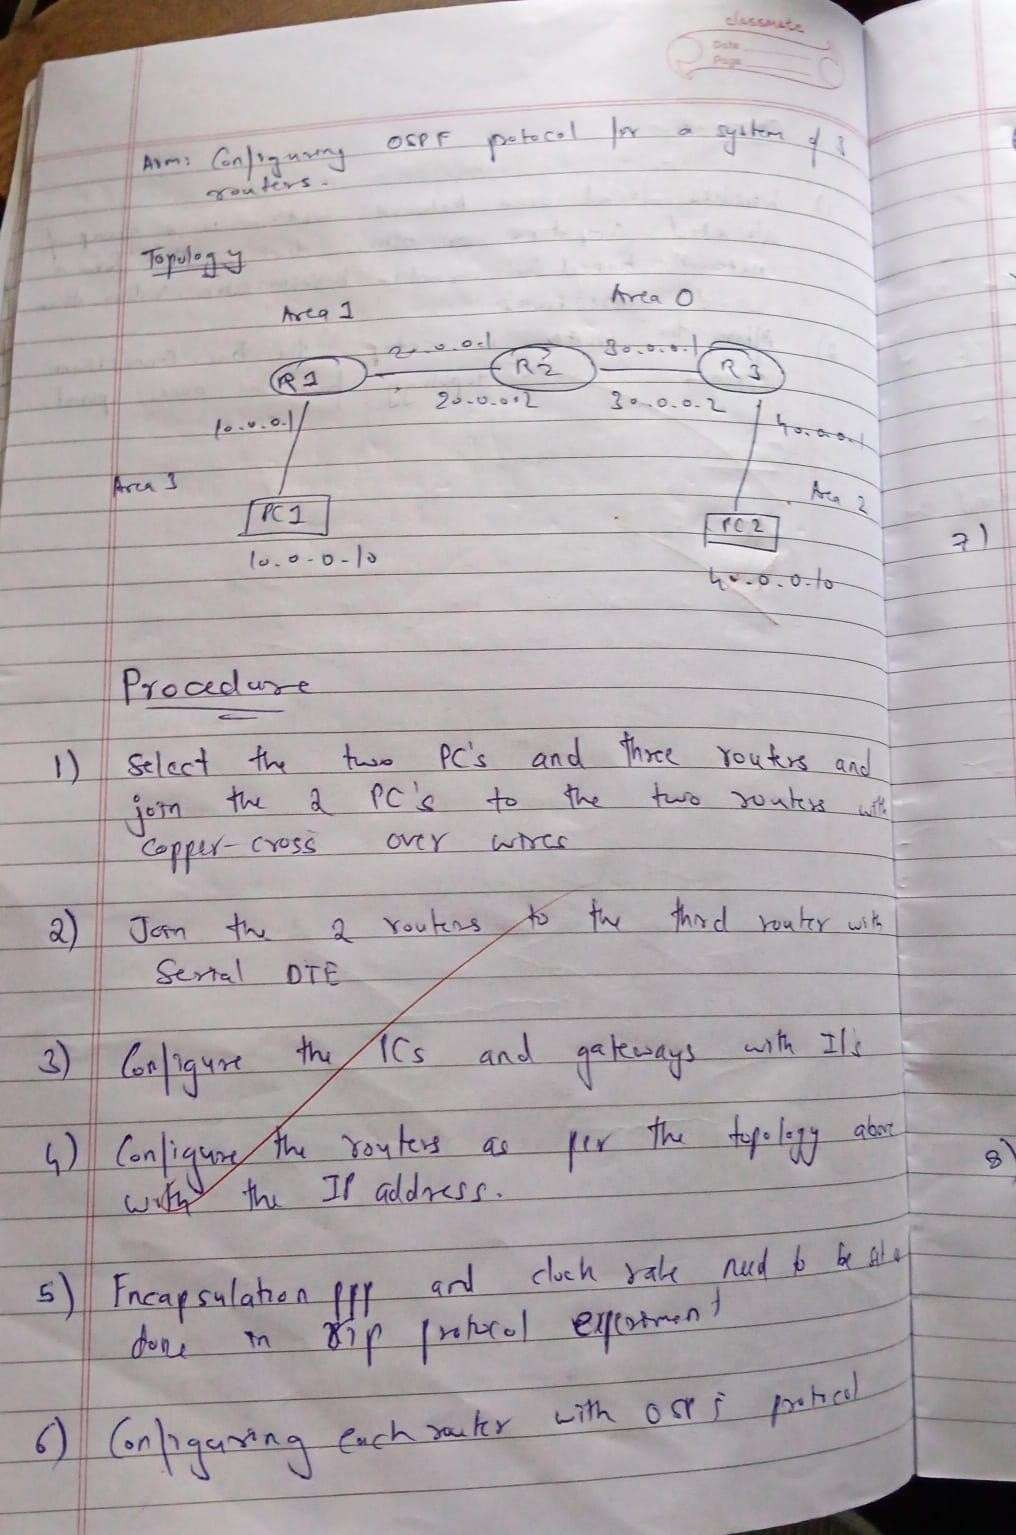 classmate
Date
Page
Aim: Configuring OSPF protocol for a system of 3
routers.
Topology
Area 1 Area 0
20.0.0.1 30.0.0.1
R1 R2 R3
20.0.0.2 30.0.0.2
10.0.0.1 40.0.0.1
Area 3 Area 2
PC1 PC2
10.0.0.10 40.0.0.10
7)
Procedure
1) Select the two PC's and three routers and
join the 2 PC's to the two routers with
copper-cross over wires
2) Join the 2 routers to the third router with
Serial DTE
3) Configure the PCs and gateways with IPs
4) Configure the routers as per the topology above
with the IP address.
8)
5) Encapsulation ppp and clock rate need to be set as
done in rip protocol experiment
6) Configuring each router with OSPF protocol